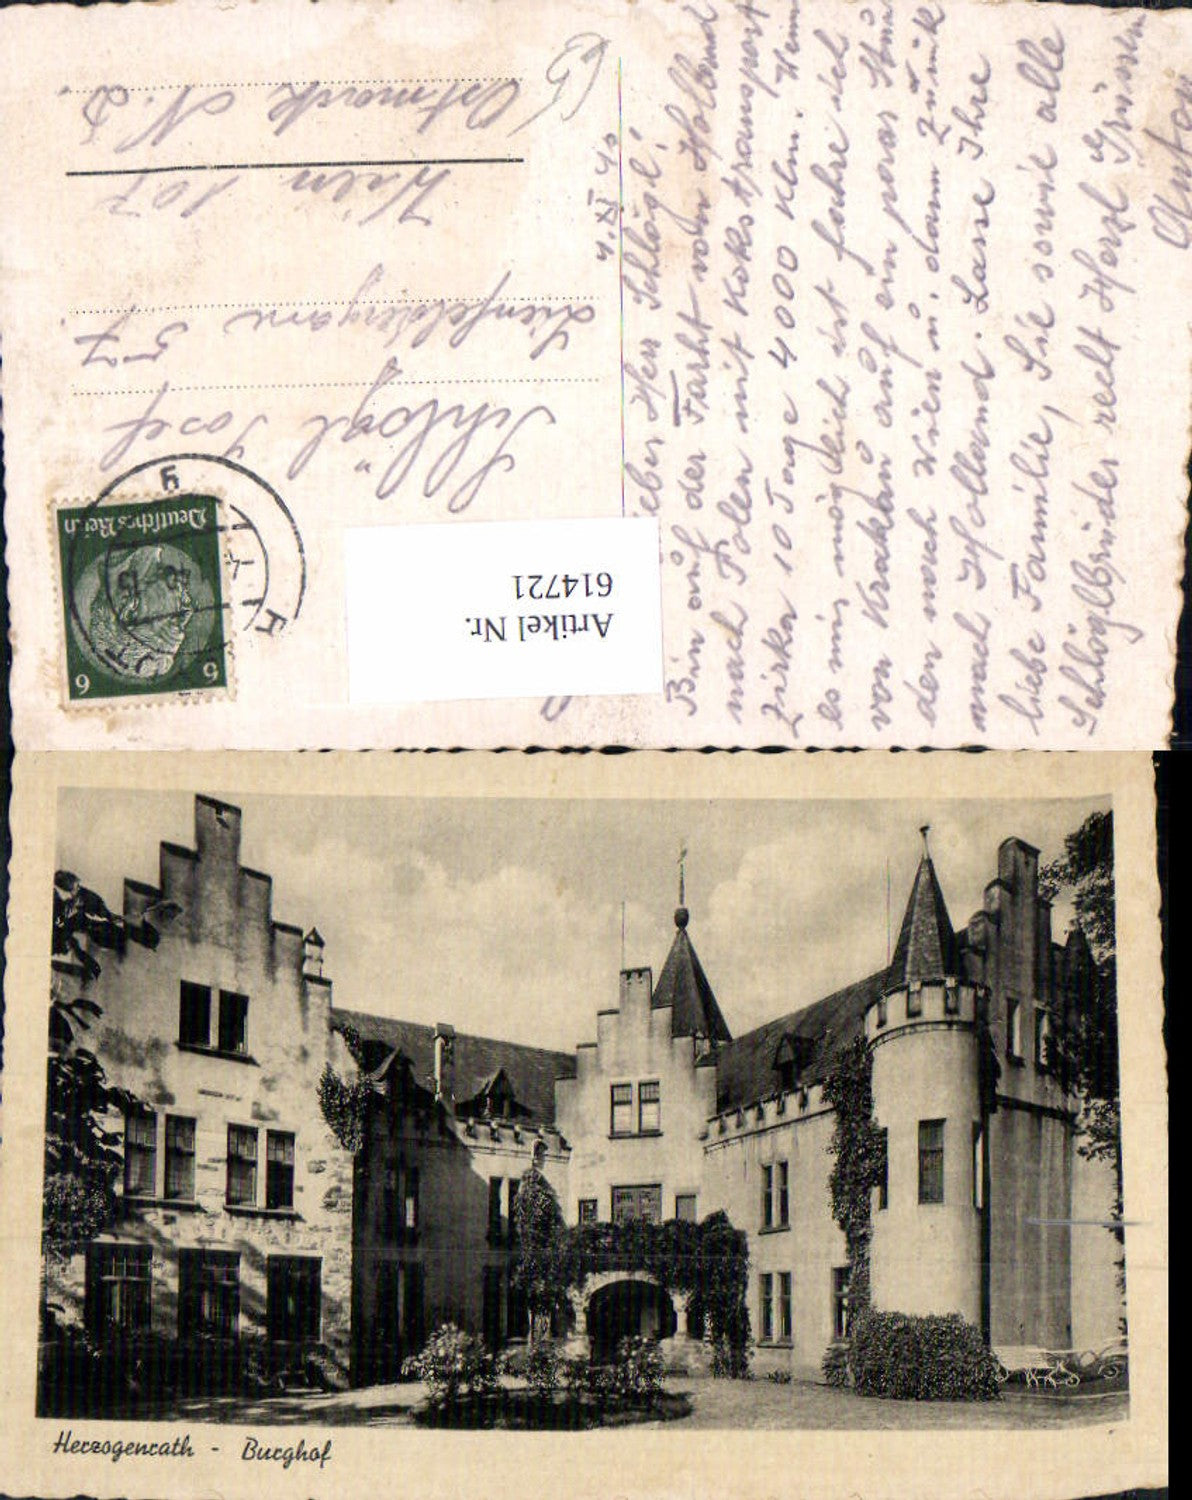 4.XI.40
Lieber Herr Schlögl!
Bin auf der Farht von Holland
nach Polen mit Kokstransport
Zirka 10 Tage 4000 Klm. Wenn
es mir möglich ist fahre ich
von Krakau auf ein paar Stun
den nach Wien u. dann zurük
nach Holland. Lasse Ihre
liebe Familie, Sie sowie alle
Schlöglbrüder reelt Herzl Grüssen
Anton
Deutsches Reich
6 6
Schlögl Josef
Linfeldergasse 57.
Wien 107
Ostmark N.D.
Artikel Nr.
614721
Herzogenrath - Burghof